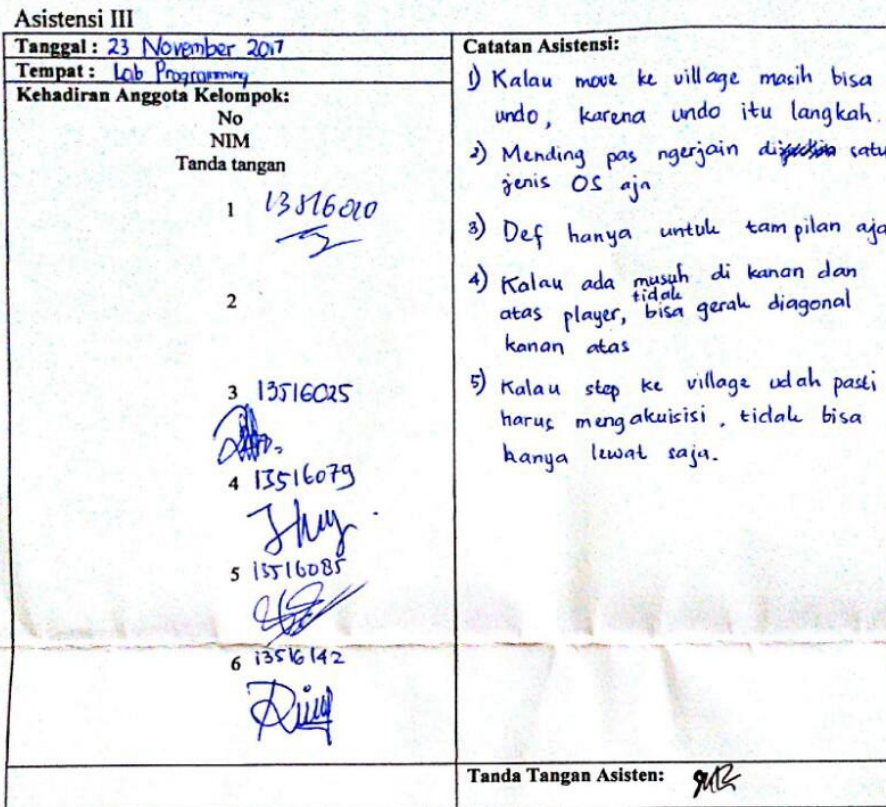 Asistensi III
Tanggal : 23 November 2017
Tempat : Lab Programming
Kehadiran Anggota Kelompok:
No
NIM
Tanda tangan
1 13516010
2
3 13516025
4 13516079
5 13516085
6 13516142
Catatan Asistensi:
1) Kalau move ke village masih bisa
undo, karena undo itu langkah.
2) Mending pas ngerjain satu
jenis OS aja
3) Def hanya untuk tampilan aja
4) Kalau ada musuh di kanan dan
atas player, tidak bisa gerak diagonal
kanan atas
5) Kalau step ke village udah pasti
harus mengakuisisi, tidak bisa
hanya lewat saja.
Tanda Tangan Asisten: